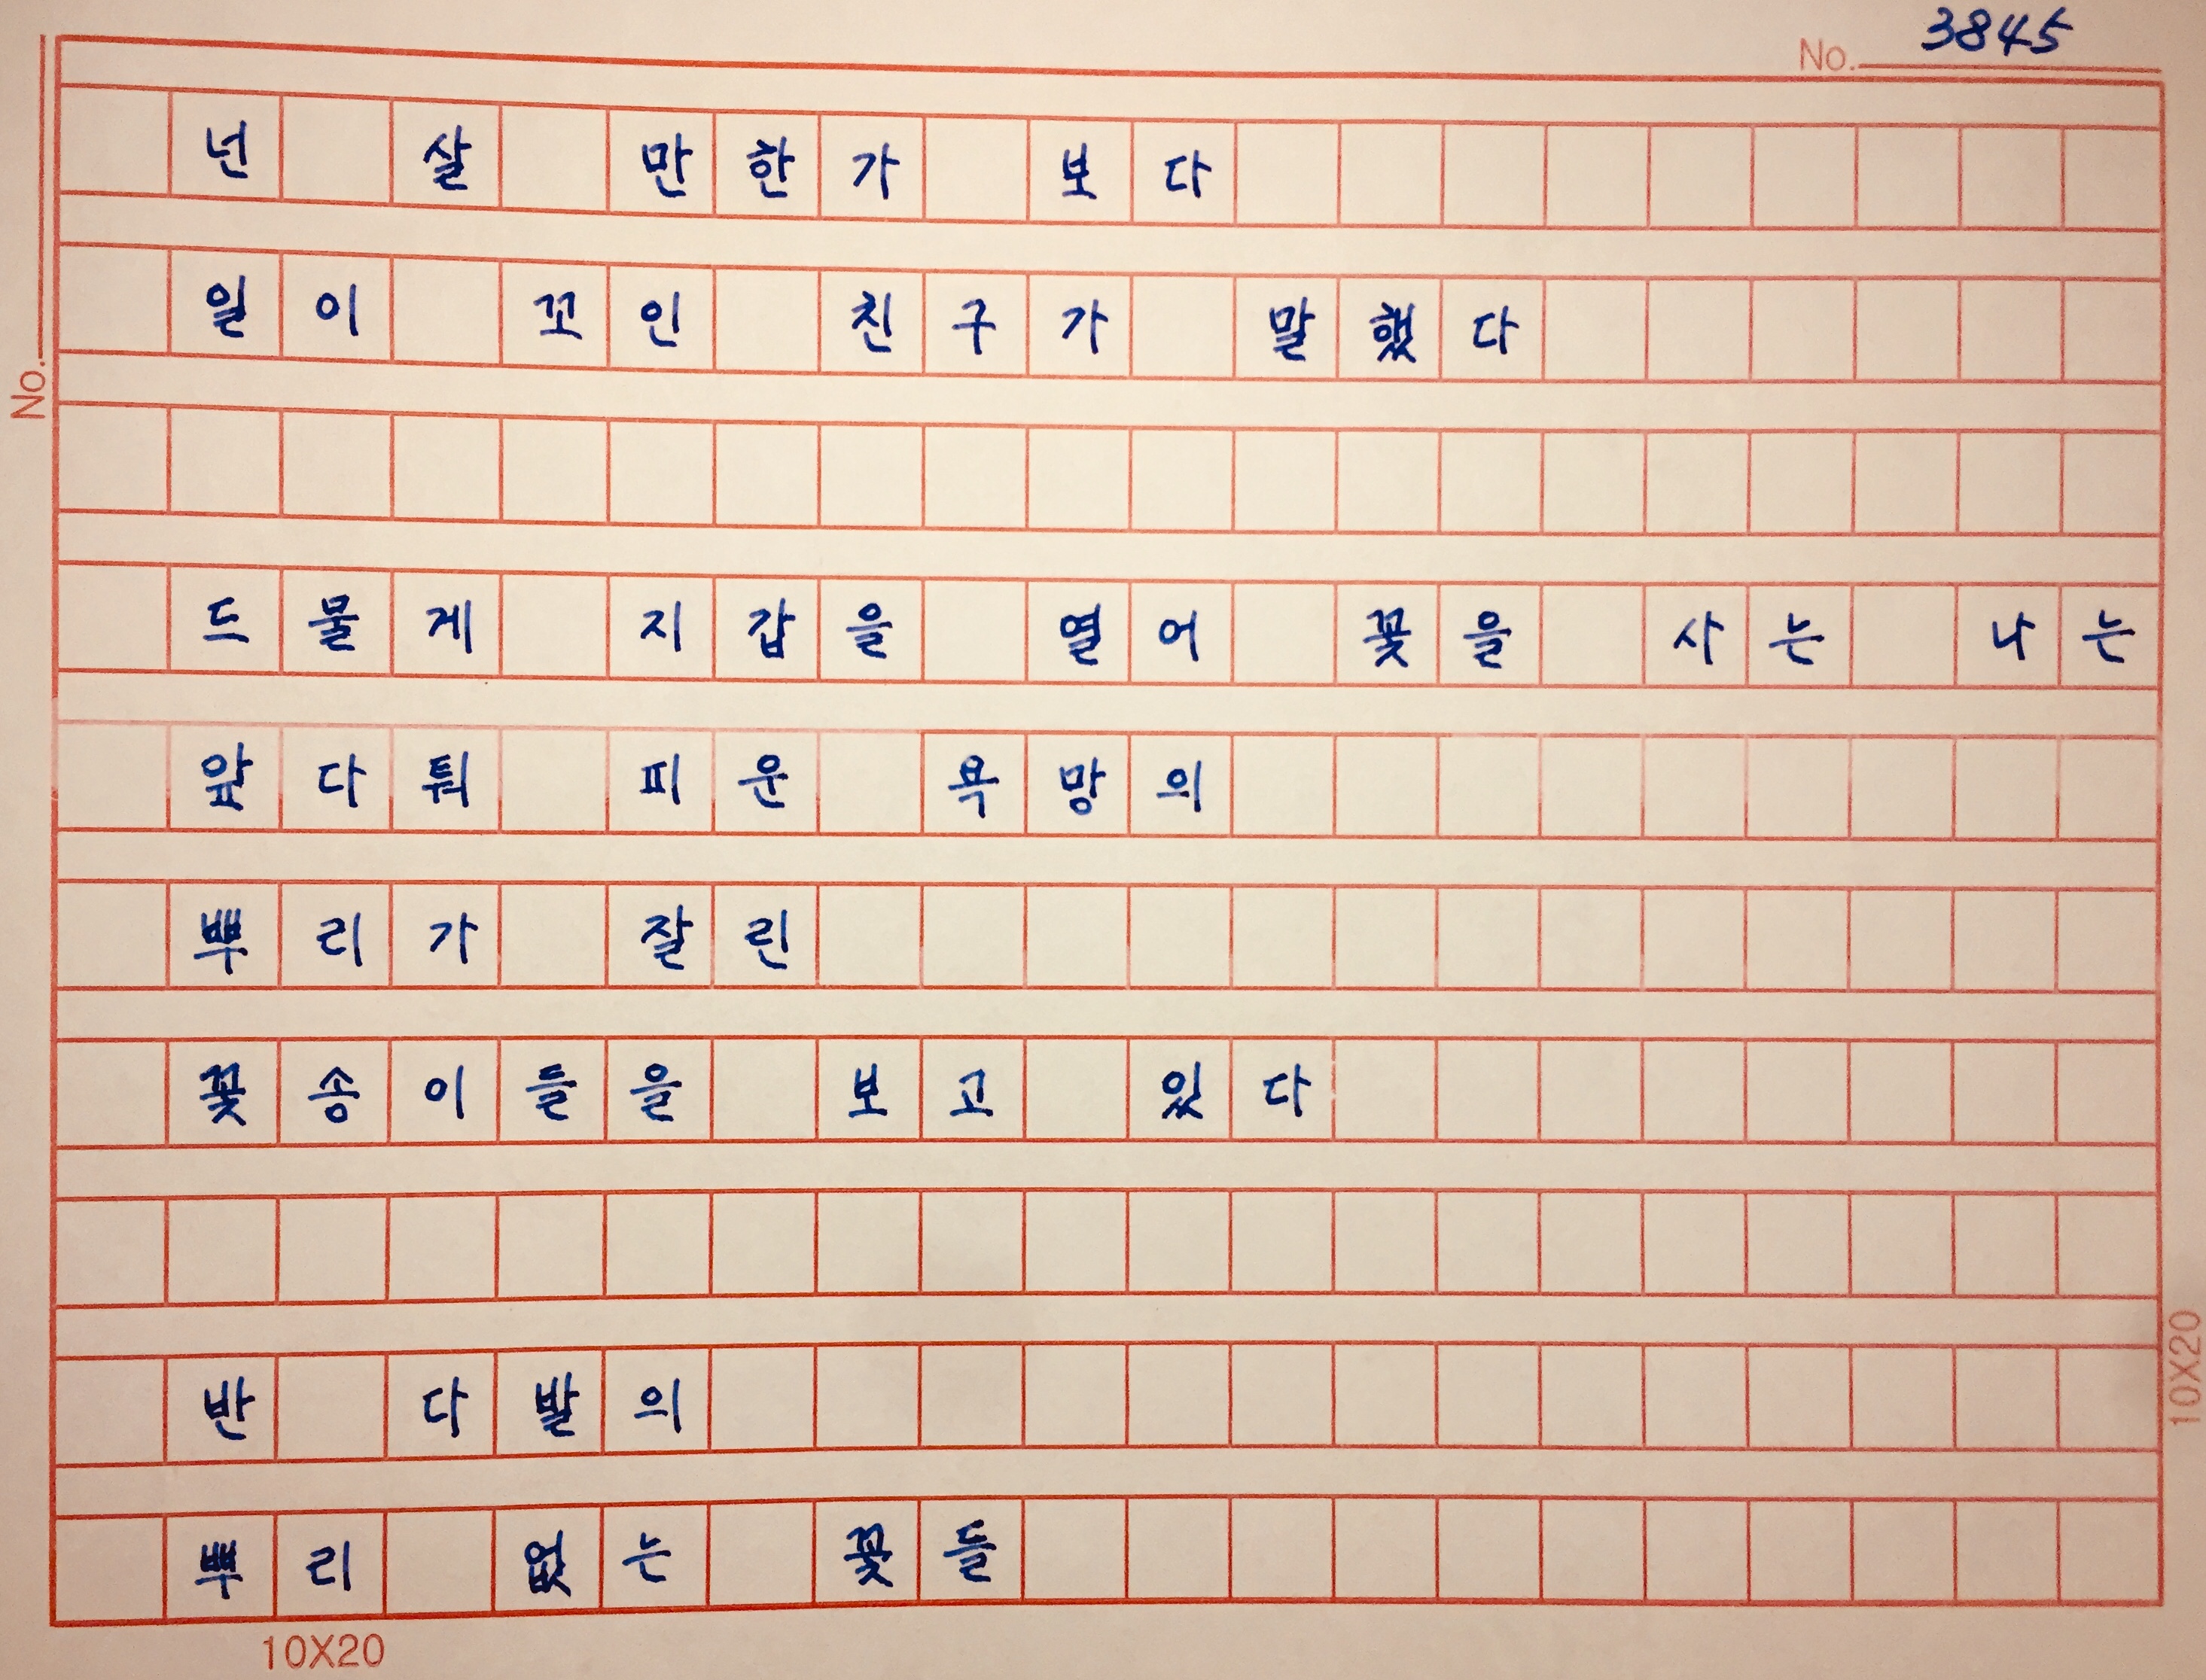 No. 3845
넌 살 만한가 보다
일이 꼬인 친구가 말했다
드물게 지갑을 열어 꽃을 사는 나는
앞다퉈 피운 욕망의
뿌리가 잘린
꽃송이들을 보고 있다
반 다발의
뿌리 없는 꽃들
No.
10X20
10X20